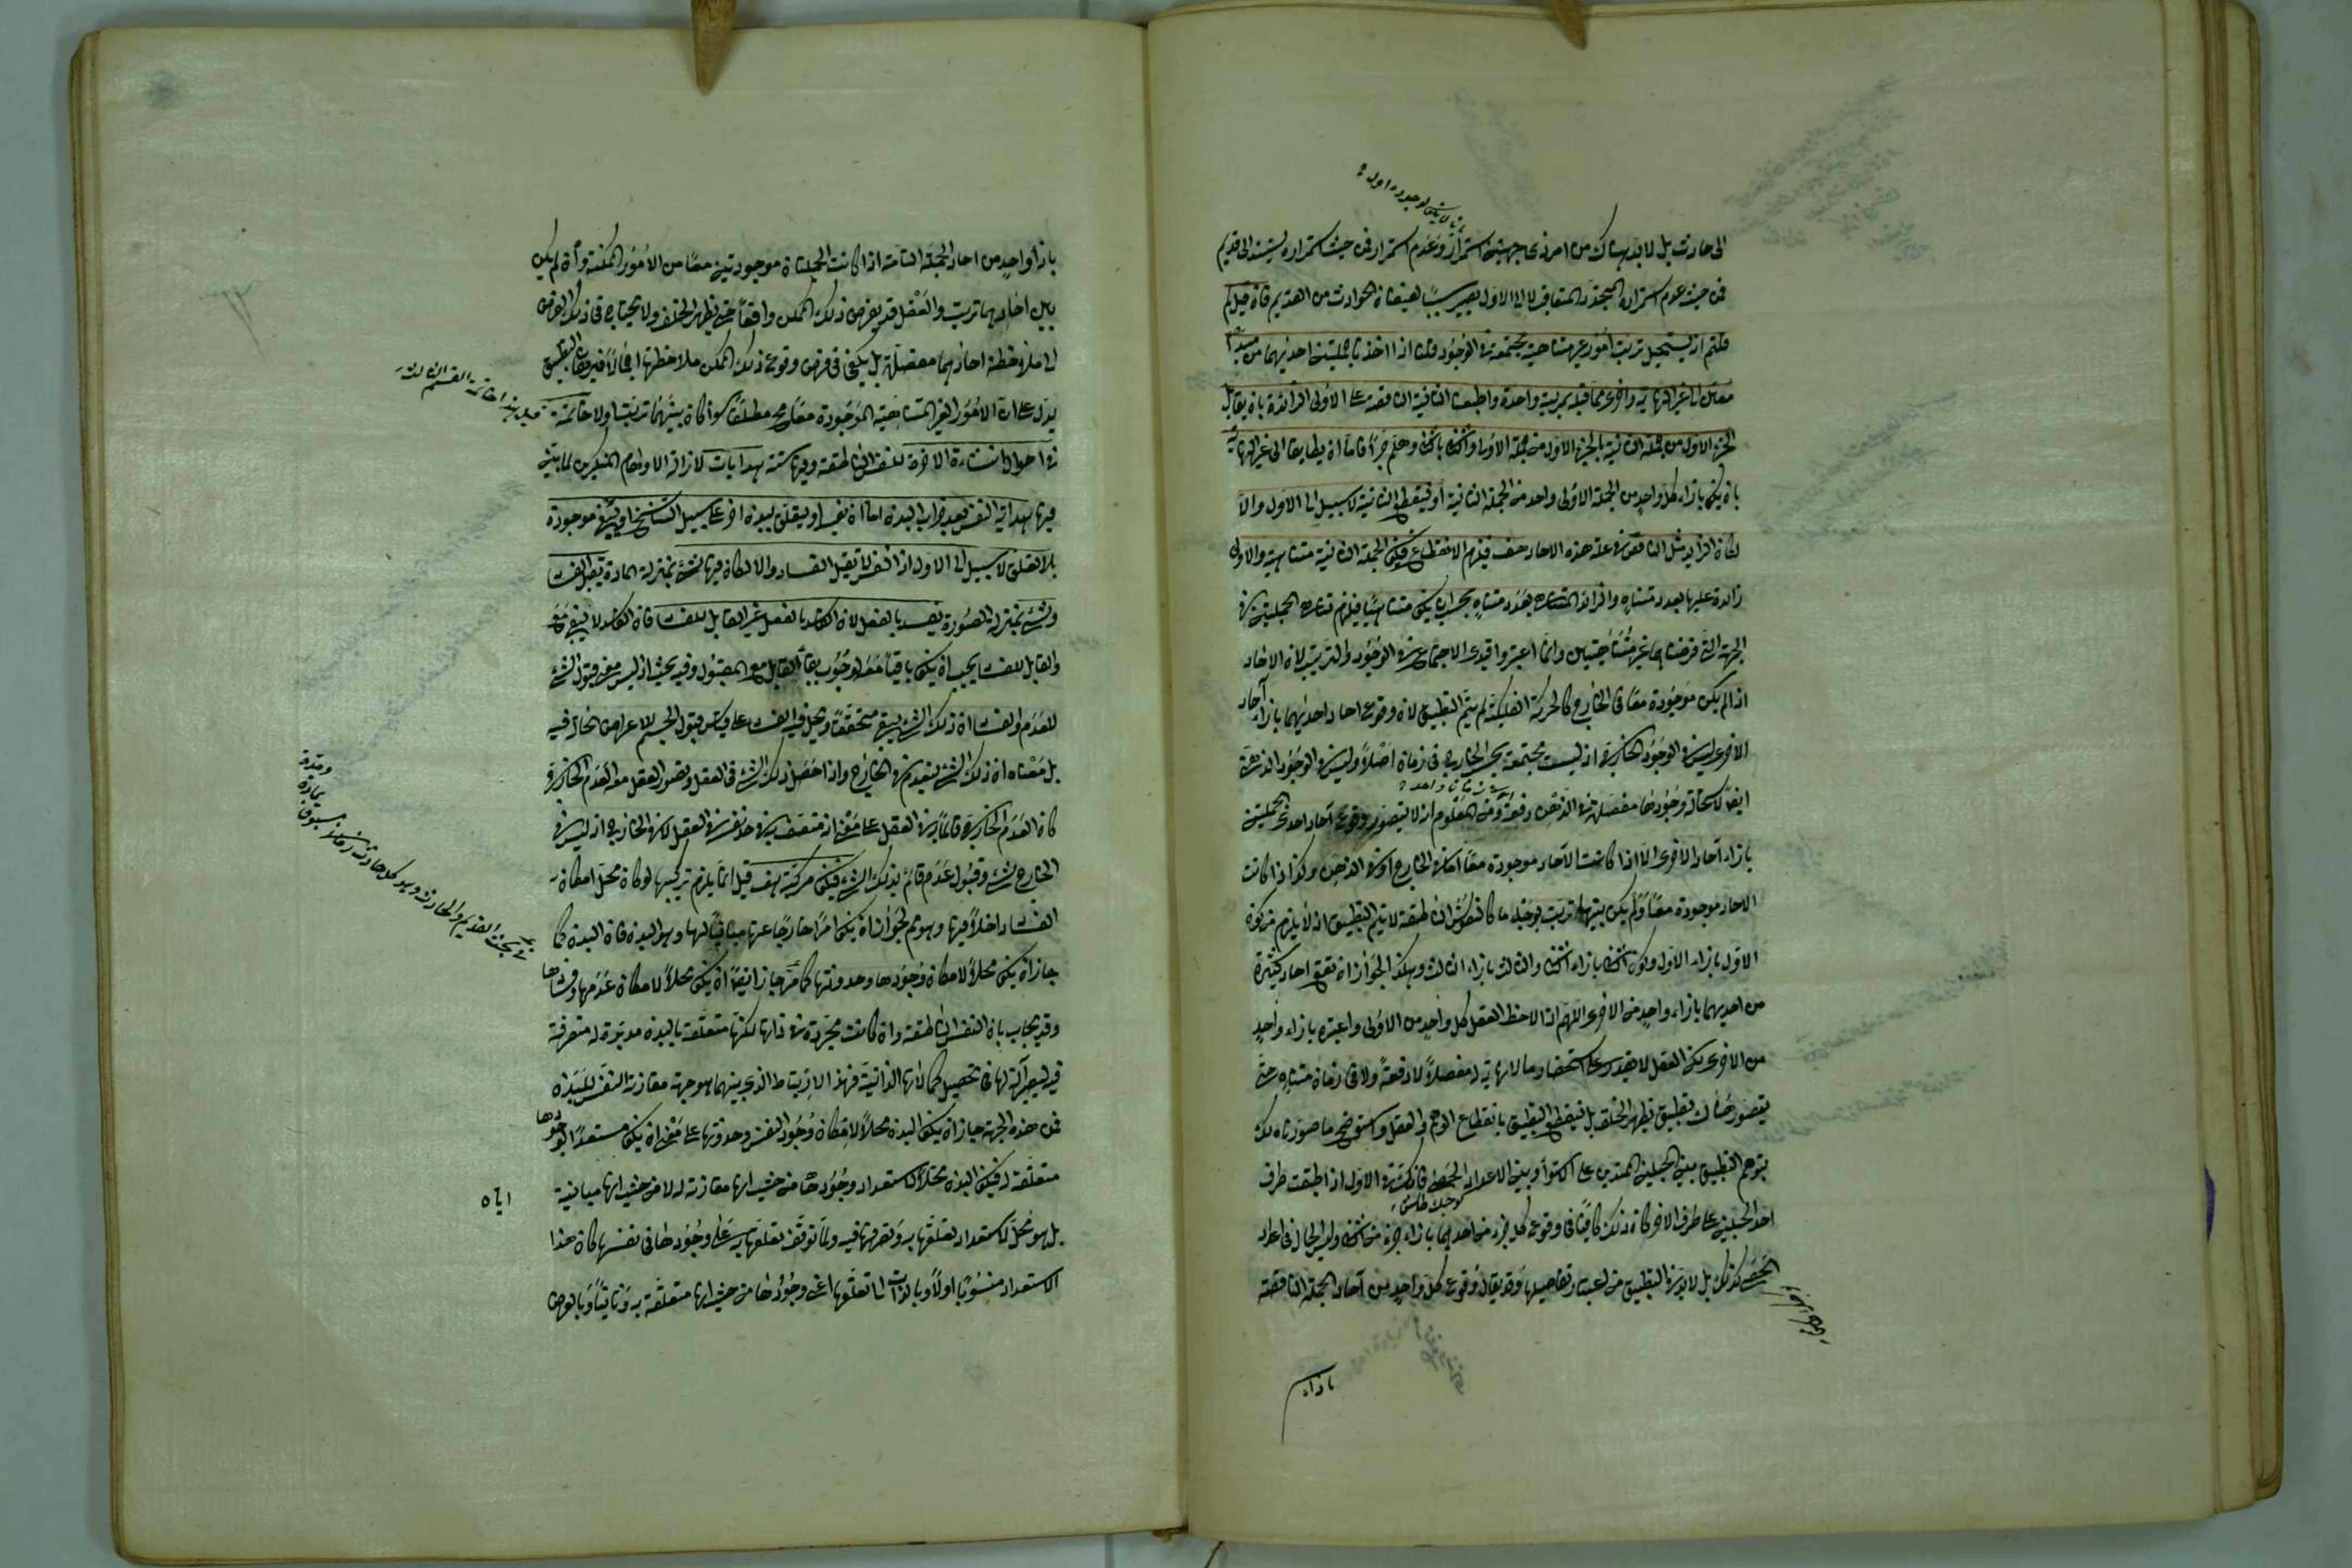 الى حادث بل لابد هناك من امر ذى جهتين استمرار وعدم استمرار فمن حيث استمراره يستند الى قديم
فمن حيث عدم استمراره المتجدد المتعاقب لا الى الاول يصير سببا لفيضان الحوادث من القديم فان قيل لم
قلتم انه يستحيل ترتب امور غير متناهية مجتمعة فى الوجود قلنا اذا اخذنا جملتين احديهما من مبدأ
معين الى غير النهاية واخرى مما قبله بمرتبة واحدة واطبقنا الثانية الناقصة على الاولى الزائدة بان يقابل
الجزء الاول من الجملة الثانية بالجزء الاول من الجملة الاولى والثانى بالثانى وهلم جرا فاما ان يتطابقا الى غير النهاية
بان يكون بازاء كل واحد من الجملة الاولى واحد من الجملة الثانية او تنقطع الثانية لا سبيل الى الاول والا
لكان الزائد مثل الناقص فى عدة هذه الاحاد هف فيلزم الانقطاع فتكون الجملة الثانية متناهية والاولى
زائدة عليها بعدد متناه والزائد المتناهى بعدد متناه يجب ان يكون متناهيا فيلزم تناهى الجملتين فى
الجهة التى فرضناهما غير متناهيتين وانما اعتبروا قيدى الاجتماع فى الوجود والترتيب لان الاحاد
اذا لم يكن موجودة معا فى الخارج كالحركة الفلكية لم يتم التطبيق لان وقوع احاد احديهما بازاء آحاد
الاخرى ليس فى الوجود الخارجى اذ ليست مجتمعة بحسب الخارج فى زمان اصلا وليس فى الوجود الذهنى
ايضا لاستحالة وجودها مفصلة فى الذهن دفعة ومن المعلوم انه لا يتصور وقوع آحاد احدى الجملتين
فى زمان واحد
بازاء آحاد الاخرى الا اذا كانت الآحاد موجودة معا اما فى الخارج او فى الذهن وكذا اذا كانت
الاحاد موجودة معا ولم يكن بينها ترتب بوجه ما كالنفوس الناطقة لا يتم التطبيق اذ لا يلزم من كون
الاول بازاء الاول وكون الثانى بازاء الثانى والثالث بازاء الثالث وهكذا لجواز ان تقع احاد كثيرة
من احديهما بازاء واحد من الاخرى اللهم اذا لاحظ العقل كل واحد من الاولى واعتبره بازاء واحد
من الاخرى لكن العقل لا يقدر على استحضار ما لا نهاية له مفصلا لا دفعة ولا فى زمان متناه حتى
يتصور هناك تطبيق ويظهر الخلف بل ينقطع التطبيق بانقطاع الوهم والعقل واستوضح ما صورناه لك
بتوهم التطبيق بين الحبلين الممتدين على الاستواء وبين الاعداد الحصى فانك فى الاول اذا اطبقت طرف
احد الحبلين على طرف الاخر كان ذلك كافيا فى وقوع كل جزء من احدهما بازاء جزء من الثانى وليس الحال فى اعداد
الحصى كذلك بل لابد فى التطبيق من اعتبار تفاصيلها وقد يقال وقوع كل واحد من آحاد الجملة الناقصة
بازاء
بازاء واحد من احاد الجملة التامة اذا كانت الجملتان موجودتين معا من الامور الممكنة وان لم يكن
بين احادهما ترتب والعقل قد يفرض ذلك الممكن واقعا حتى يظهر الخلف ولا يحتاج فى ذلك الفرض
الى ملاحظة احادهما مفصلة بل يكفى فى فرض وقوع ذلك الممكن ملاحظتها اجمالا فبرهان التطبيق
يدل على ان الامور الغير المتناهية الموجودة معا محال مطلقا سواء كان بينها ترتب اولا خاتمة
قيل هذا خاتمة القسم الثالث
فى احوال النشاة الاخرة للنفس الناطقة وفيها ستة هدايات لازالة الاوهام المنكرين لما يثبت
فيها هداية النفس بعد خراب البدن اما ان تفسد او يتعلق ببدن اخر على سبيل التناسخ او يبقى موجودة
بلا تعلق لا سبيل الى الاول اذ النفس لا تقبل الفساد والا لكان فيها شئ بمنزلة المادة يقبل الفساد
وشئ بمنزلة الصورة يفسد بالفعل لان الفاسد بالفعل غير القابل للفساد فان الفاسد لا يبقى مع
والقابل للفساد يجب ان يكون باقيا معه لوجوب بقاء القابل مع المقبول وفيه بحث اذ ليس معنى قبول الشئ
للعدم والفساد ان ذلك الشئ يبقى متحققا ويحل فيه الفساد على قياس قبول الجسم للاعراض الحالة فيه
بل معناه ان ذلك الشئ ينعدم فى الخارج واذا حصل ذلك الشئ فى العقل وتصور العقل معه العدم الخارجى
كان العدم الخارجى قائما به فى العقل على معنى انه متصف به فى حد نفسه فى العقل لا فى الخارج اذ ليس فى
الخارج شئ وقبول عدم قائم بذلك الشئ فتكون مركبة هف قيل انما يلزم تركبها لو كان محل امكان
الفساد داخلا فيها وهو ثم لجواز ان يكون امرا خارجا عنها مباينا لها وهو البدن فان البدن كما
جاز ان يكون محلا لامكان وجودها وحدوثها كما مر جاز ايضا ان يكون محلا لامكان عدمها وفسادها
وقد يجاب بان النفس الناطقة وان كانت مجردة فى ذاتها لكنها متعلقة بالبدن مدبرة له متصرفة
فيه ليصير آلة لها فى تحصيل كمالاتها الذاتية فهذا الارتباط الذى بينهما هو جهة مقارنة النفس للبدن
فمن هذه الجهة جاز ان يكون البدن محلا لامكان وجود النفس وحدوثها على معنى ان يكون مستعدا لوجودها
متعلقة له فيكون البدن محلا لاستعداد وجودها من حيث انها مقارنة له لا من حيث انها مباينة
اياه
بل هو محل لاستعداد تعلقها به وتصرفها فيه ولما توقف تعلقها به على وجودها فى نفسها كان هذا
الاستعداد منسوبا اولا وبالذات الى تعلقها اعنى وجودها من حيث انها متعلقة به وثانيا وبالعرض